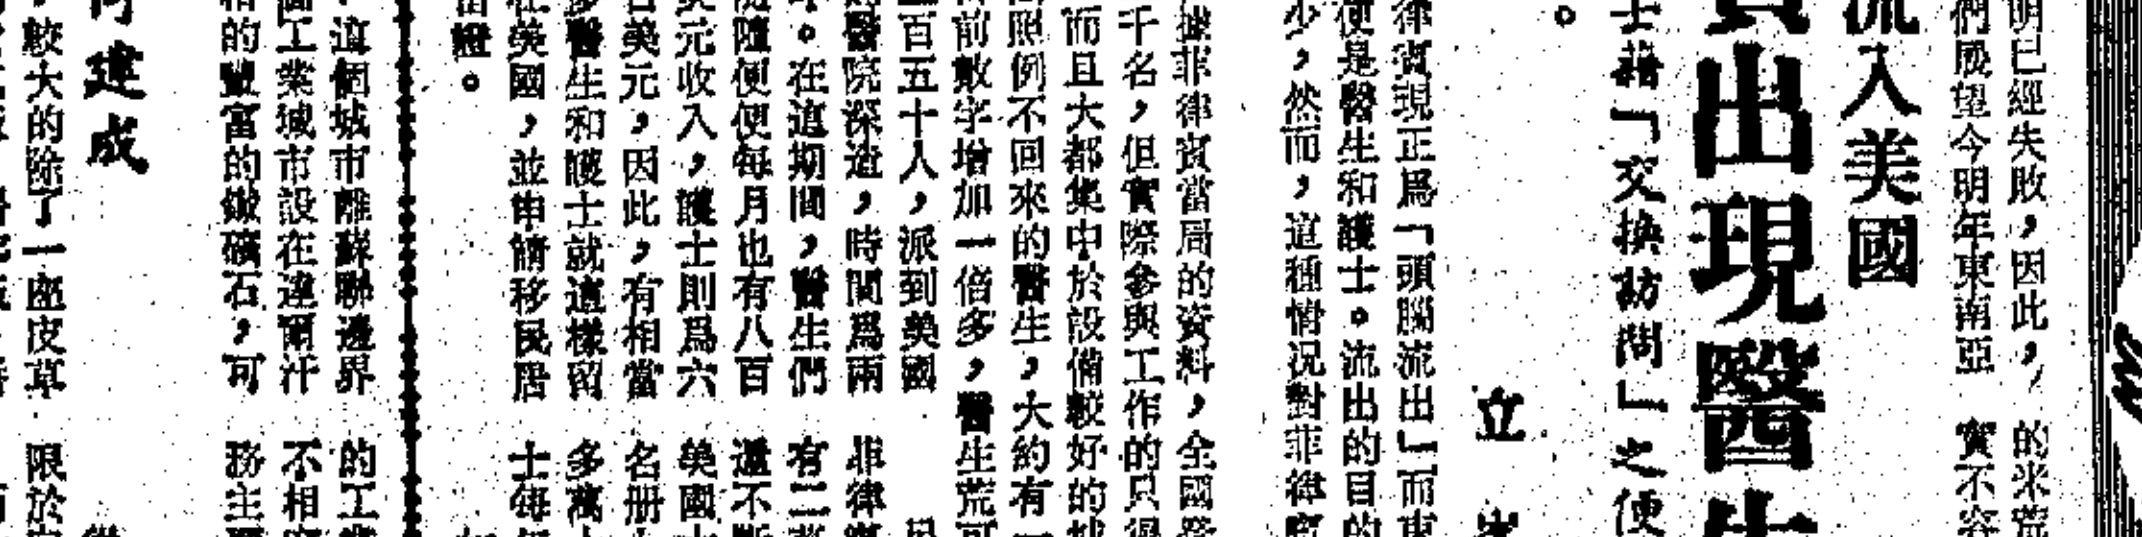 明已經失敗，因此，
們展望今明年東南亞
的米荒
實不容
流入美國
賓出現醫生
士藉「交換訪問」之便
立
律賓現正爲「頭腦流出」而東
便是醫生和護士。流出的目的
少，然而，這種情況對菲律賓
據菲律賓當局的資料，全國登
千名，但實際參與工作的只得
而且大都集中於設備較好的城
照例不回來的醫生，大約有一
前數字增加一倍多，醫生荒可
百五十人，派到美國
醫院深造，時間爲兩
。在這期間，醫生們
隨便便每月也有八百
美元收入，護士則爲六
百美元，因此，有相當
多醫生和護士就這樣留
在美國，並申請移民居
留證。
菲律賓
有二
遞不斷
美國
名册
多萬
士每年
這個城市離蘇聯邊界
個工業城市設在連爾汗
和的豐富的鎩礦石，可
的工業
不相
務主要
建成
較大的除了一座皮草
限於